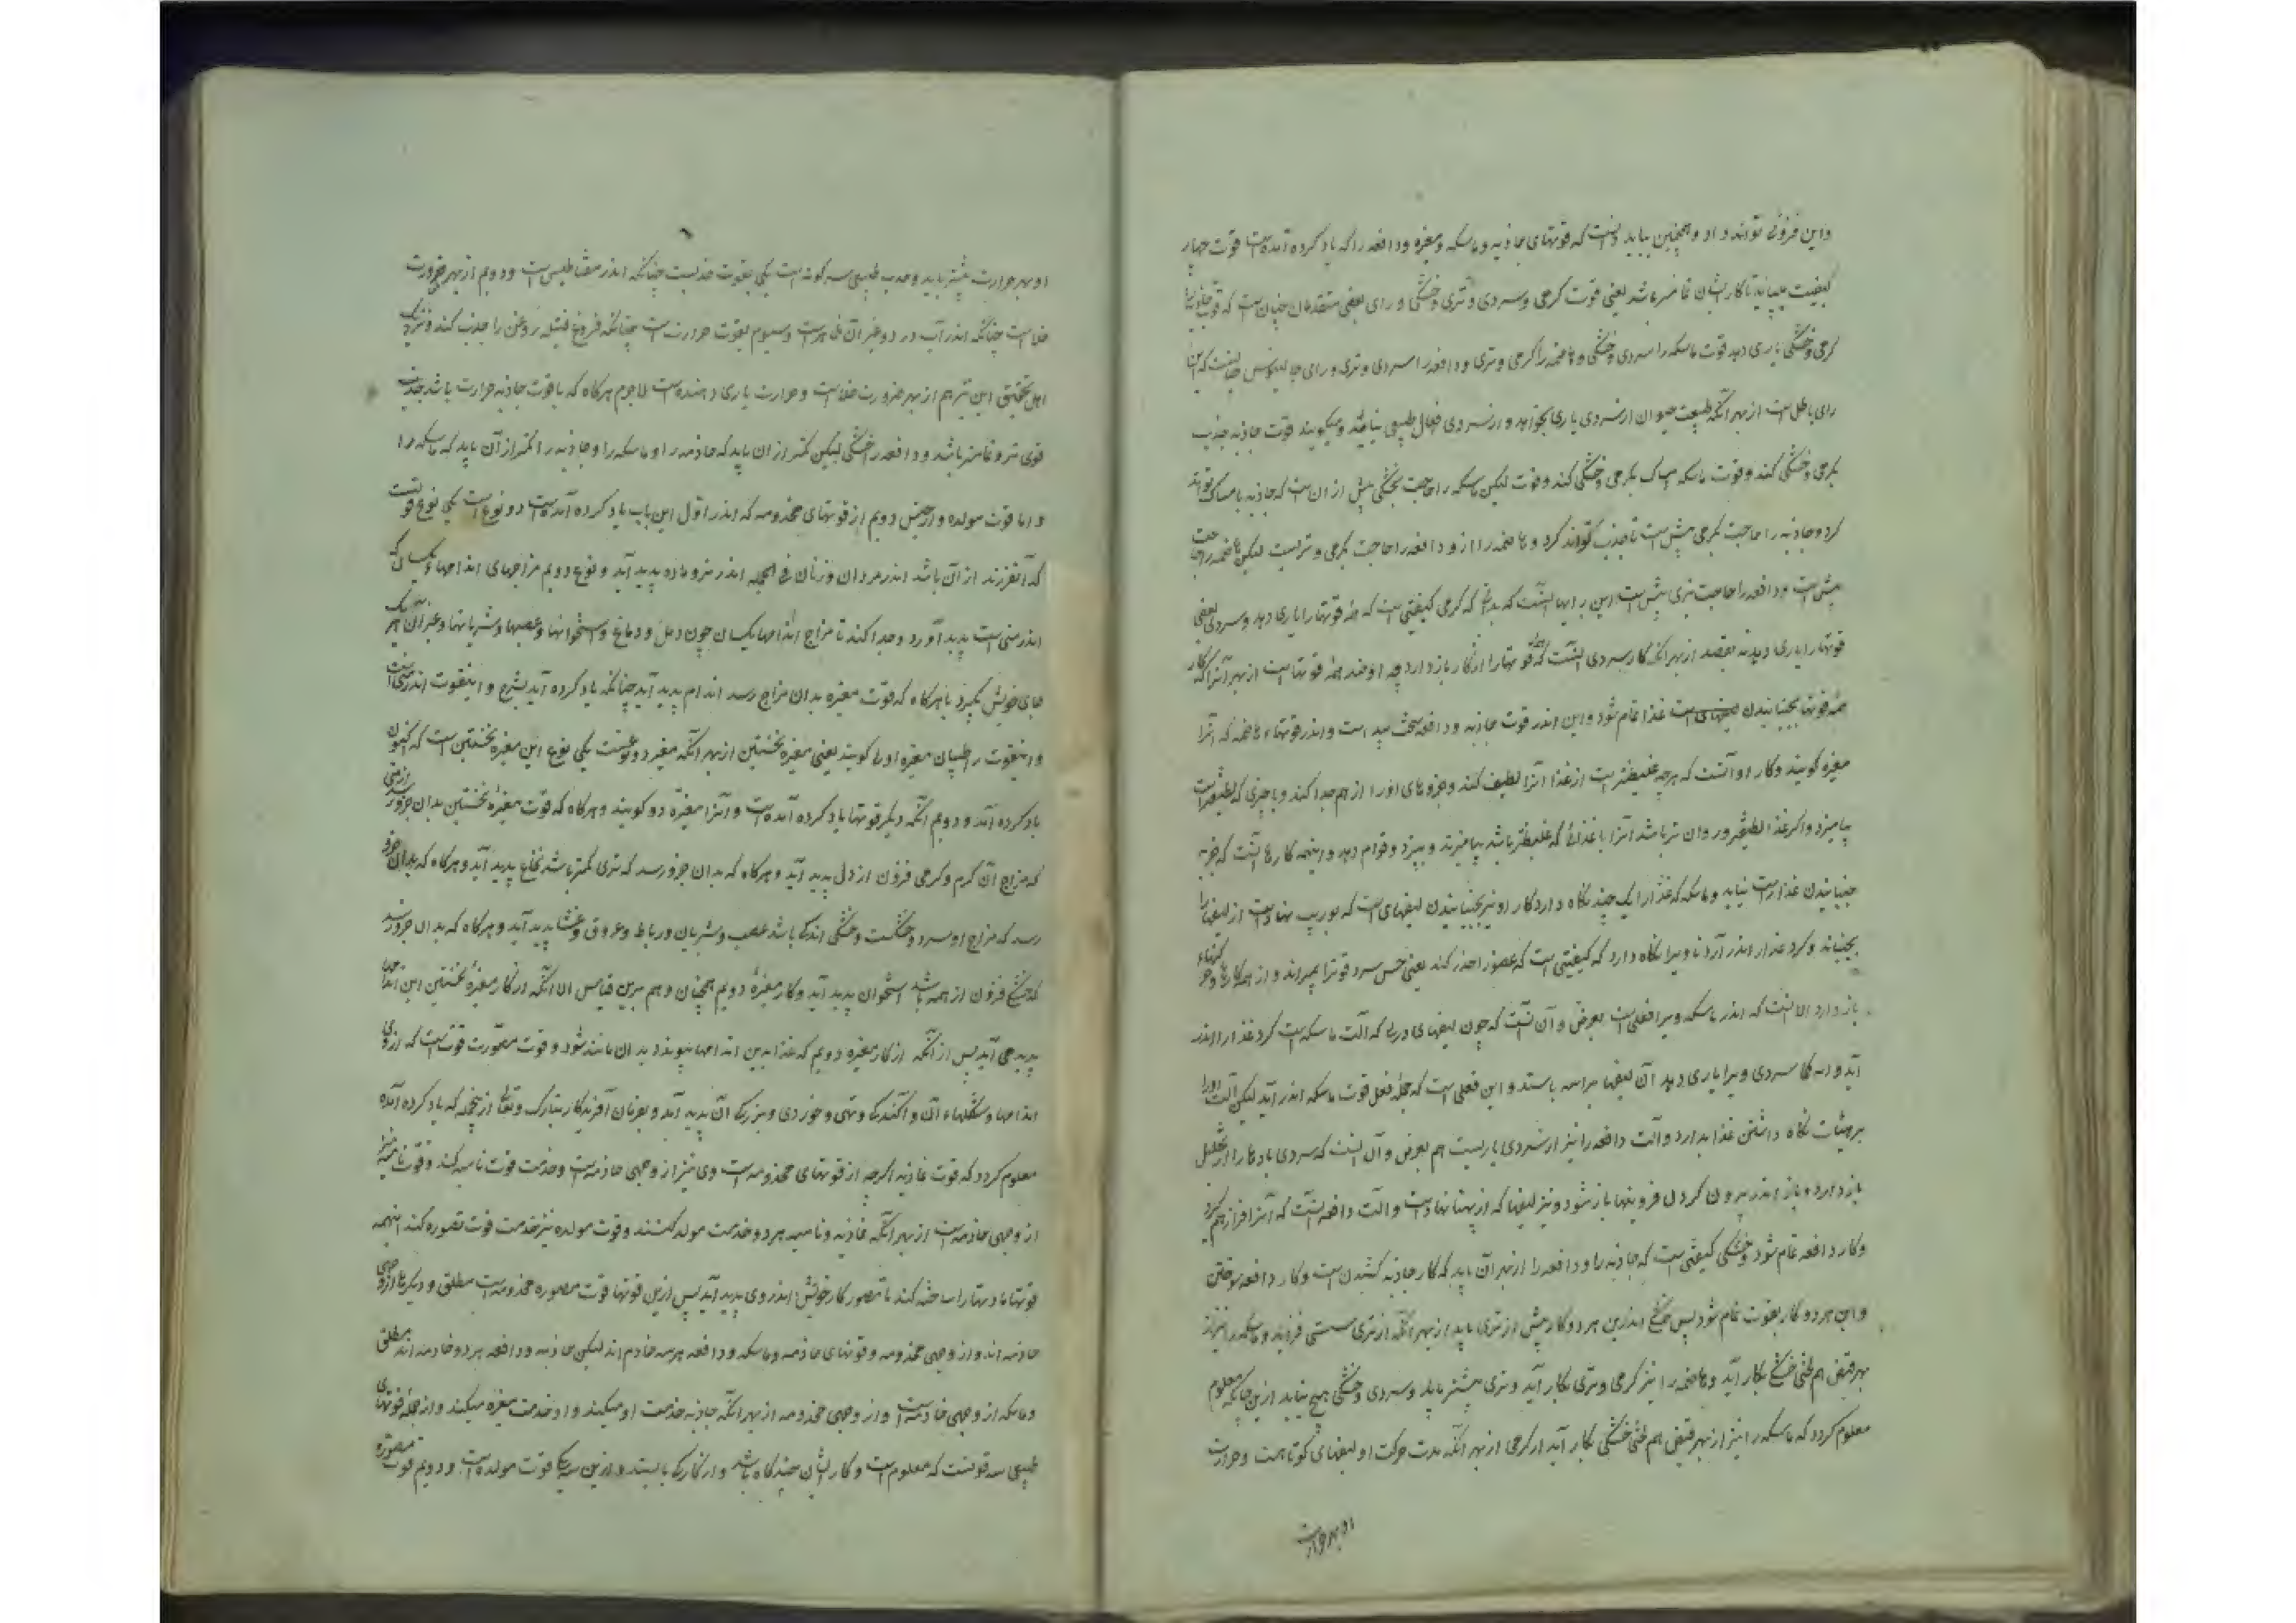 واین فزونی تواند داد و همچنین بباید دانست که قوتهای جاذبه و ماسکه و مغیره و دافعه را که یاد کرده آمده است قوت چهار
کیفیت میباید تا کار ایشان تمامتر باشد یعنی قوت گرمی و سردی و تری و خشکی و رای بعضی متقدمان چنان است که قوت جاذبه را
گرمی و خشکی یاری دهد قوت ماسکه را سردی و خشکی و هاضمه را گرمی و تری و دافعه را سردی و تری و رای جالینوس چنانست که این
رای باطل است از بهر آنکه طبیعت حیوان از سردی یاری نخواهد و از سردی فعال طبیعی نیاید و میگویند قوت جاذبه جذب
بگرمی و خشکی کند و قوت ماسکه امساک بگرمی و خشکی کند وقوت لیکن ماسکه را حاجت بخشکی بیش از ان است که جاذبه با مساک تواند
کرد و جاذبه را حاجت بگرمی بیش است تا جذب تواند کرد و هاضمه را از و دافعه را حاجت بگرمی و تریست لیکن هاضمه را حاجت
بیش است و دافعه را حاجت تری بیش است این رایها آنست که بدانی که گرمی کیفیتی است که همه قوتها را یاری دهد و سردی بعضی
قوتها را یاری دهد نه بقصد از بهر آنکه کار سردی آنست که همه قوتها را از کار باز دارد چه او ضد همه قوتهاست از بهر آنرا که کار
همه قوتها بجنبانیدن لیفهای است غذا تمام شود و این اندر قوت جاذبه و دافعه سخت پیداست و اندر قوتهاء هاضمه که آنرا
مغیره گویند و کار او آنست که هرچه غلیظتر است از غذا آنرا لطیف کند و جزوهای او را از هم جدا کند و با چیزی که لطیفتر است
بیامیزد و اگر غذا لطیفتر و روان تر باشد آنرا با غذائی که غلیظتر باشد بیامیزند و بپزد و قوام دهد و اینهمه کارها آنست که جز به
جنبانیدن غذا راست نیاید و ماسکه که غذا را یک چند نگاه دارد کار او نیز بجنبانیدن لیفهای است که بوریب نهاده است از لیفها را
بجنباند و گرد غذا را اندر آرد تا ویرا نگاه دارد که کیفیتی است که عضو را خدر کند یعنی حس سرد قوترا بمیراند و از همه کارها و حرکتهاء
باز دارد الا آنست که اندر ماسکه ویرا فعلی است بعرض و آن آنست که چون لیفهای وریب که آلت ماسکه است گرد غذا را اندر
آید و انگاه سردی ویرا یاری دهد آن لیفها بر آسه باستد و این فعلی است که جمله فعل قوت ماسکه اندر آید لیکن آلت او را
بر هیئات نگاه داشتن غذا بدارد و آلت دافعه را نیز از سردی یاریست هم بعرض و آن آنست که سردی بادها را از تحلیل
باز دارد و باز اندر بیرون کردن فزونیها باز شود و نیز لیفها که از پهنا نهاده است و آلت دافعه آنست که آنرا فراز هم گیرد
و کار دافعه تمام شود و خشکی کیفیتی است که جاذبه را و دافعه را از بهر آن باید که کار جاذبه کشیدن است و کار دافعه سوختن
و این هر دو کار بقوت تمام شود پس خشکی اندرین هر دو کار بیش از تری باید از بهر آنکه از تری سستی فزاید و ماسکه را نیز از
بهر قبض هم لختی خشکی بکار آید و هاضمه را نیز گرمی و تری بکار آید و تری بیشتر باید و سردی و خشکی هیچ نیاید ازین جایگه معلوم
معلوم گردد که ماسکه را نیز از بهر قبض هم لختی خشکی بکار آید از گرمی از بهر آنکه مدت حرکت او لیفهای کوتاهست و حرارت
او بهر حرارت
او بهر حرارت بیشتر باید و جذب طبیعی سه گونه است یکی بقوت جذبست چنانکه اندر مغناطیس است و دویم از بهر ضرورت
خلاست چنانکه اندر آب درد و غیر آن ظاهر است و سیوم بقوت حرارت است چنانکه فروغ فتیله روغن را جذب کند و نزدیک
اهل تحقیق این نیز هم از بهر ضرورت خلاست و حرارت یاری دهنده است لاجرم هرگاه که با قوت جاذبه حرارت باشد جذب
قوی تر و تمامتر باشد و دافعه را خشکی لیکن کمتر از ان باید که جاذبه را و ماسکه را و جاذبه را کمتر از آن باید که ماسکه را
و اما قوت مولده و از جنس دویم از قوتهای مخدومه که اندر اول این باب یاد کرده آمده است دو نوع است یکی نوع قوتست
که آنفرزند از آن باشد اندر مردان و زنان فی الجمله اندر نر و ماده پدید آید و نوع دویم مزاجهای اندامهاء یکسان که
اندر منی است پدید آورد و جدا کند تا مزاج اندامها یکسان چون دل و دماغ و استخوانها و عصبها و شریانها و غیر آن هر یک
جای خویش بگیرد یا هرگاه که قوت مغیره بدان مزاج رسد اندام پدید آید چنانکه یاد کرده آید بشرح و اینقوت اندر منی است
و اینقوت را طبیبان مغیره اولی گویند یعنی مغیره نخستین از بهر آنکه مغیره دو نوعست یکی نوع این مغیره نخستین است که اکنون
یاد کرده آمد و دویم آنکه دیگر قوتها یاد کرده آمده است و آنرا مغیره دو گویند و هرگاه که قوت مغیره نخستین بدان جزو رسد از منی
که مزاج آن گرم و گرمی فزون از دل پدید آید و هرگاه که بدان جزو رسد که تری کمتر باشد نخاع پدید آید و هرگاه که بدان جزو
رسد که مزاج او سرد و خشکست و خشکی اندک باشد عصب و شریان و رباط و عروق و غشا پدید آید و هرگاه که بدان جزو رسد
که خشکی فزون از همه باشد استخوان پدید آید و کار مغیره دویم همچنان و هم برین قیاس الا آنکه از کار مغیره نخستین این اندامها
پدید می آید پس از آنکه از کار مغیره دویم که غذا بدین اندامها بپیوندد بدان مانند شود و قوت مصورت قوتست که از وی
اندامها و شکلهاء آن و آکندگی و تهی و خوردی و بزرگی آن پدید آید و بفرمان آفریدگار تبارک و تعالی از جمله که یاد کرده آمده
معلوم گردد که قوت غاذیه اگرچه از قوتهای مخدومه است وی نیز از وجهی خادمه است و خدمت قوت نامیه کند و قوت نامیه نیز
از وجهی خادمه است از بهر آنکه غاذیه و نامیه هر دو خدمت مولد کنند و قوت مولده نیز خدمت قوت مصوره کند اینهمه
قوتها مادتها را ساخته کند تا مصور کار خویش اندر وی پدید آید پس ازین قوتها قوت مصوره مخدومه است مطلق و دیگرها از وجهی
خادمه اند و از وجهی مخدومه و قوتهای خادمه و ماسکه و دافعه هر سه خادم اند لیکن جاذبه و دافعه هر دو خادمه اند مطلق
و ماسکه از وجهی خادمه است و از وجهی مخدومه از بهر آنکه جاذبه خدمت او میکند و او خدمت مغیره میکند و از جمله قوتهای
طبیعی سه قوتست که معلوم است و کار ایشان چندگاه باشد و از کار بایستد و ازین سه یکی قوت مولده است و دویم قوت مصوره